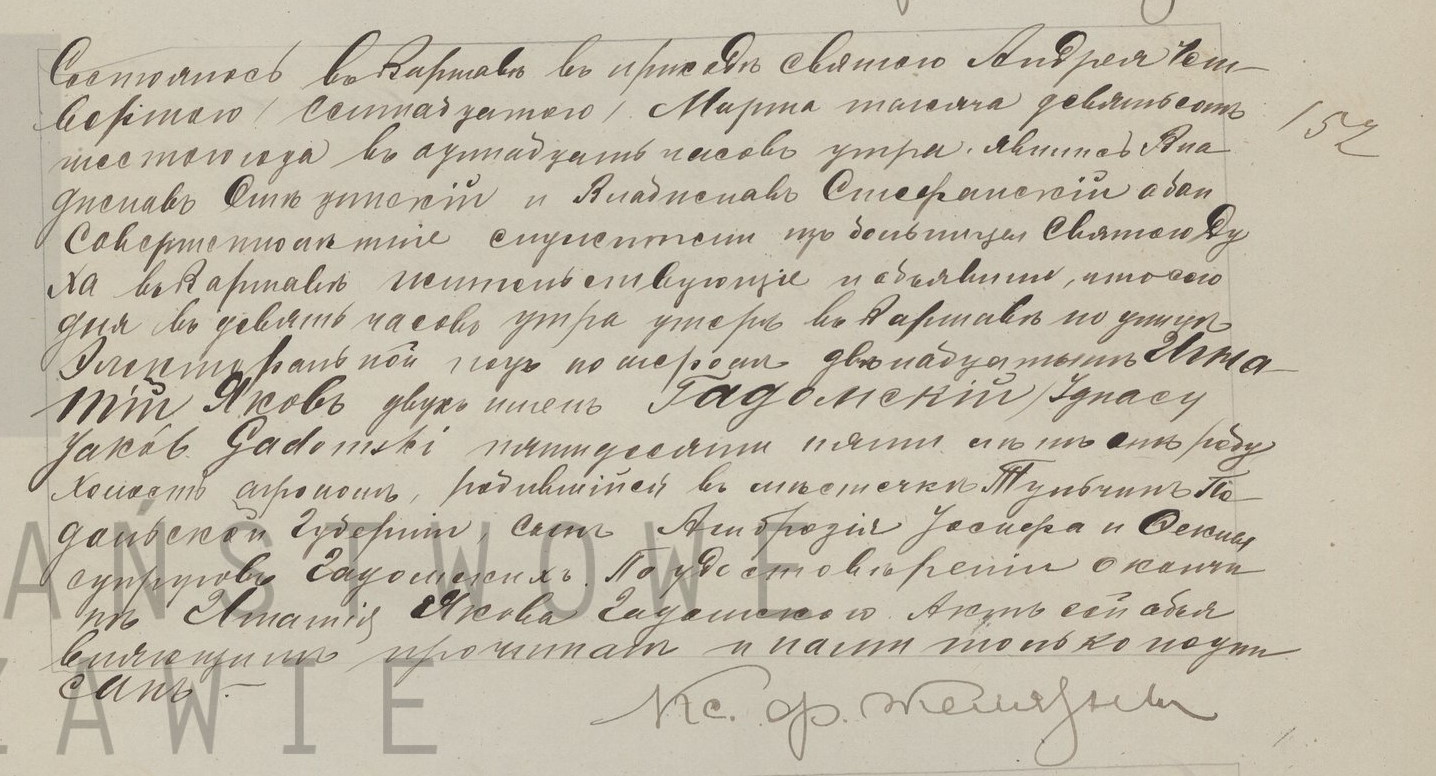 Состоялось въ Варшавѣ въ приходѣ святого Андрея Чет-
вертого / семнадцатого / Марта тысяча девятьсотъ
шестого года въ одинадцать часовъ утра. Явились Вла
диславъ и Владиславъ Стефанскій оба
совершеннолѣтніе служители изъ больницы Святого Ду
ха въ Варшавѣ жительствующіе и объявили, что сего
дня въ девять часовъ утра умеръ въ Варшавѣ по улицѣ
Электоральной подъ номеромъ двѣнадцатымъ Игна-
тій Яковъ двухъ именъ Гадомскій / Ignacy
Jakób Gadomski пятидесяти пяти лѣтъ отъ роду
холостъ агрономъ, родившійся въ мѣстечкѣ Тульчинъ По
дольской Губерніи, сынъ Амброзія Іосифа и
супруговъ Гадомскихъ. По удостовѣреніи о кончи
нѣ Игнатія Якова Гадомского. Актъ сей объя
вляющимъ прочитанъ и нами только подпи
санъ. —
Кс. Ф.
152
PAŃSTWOWE
WARSZAWIE